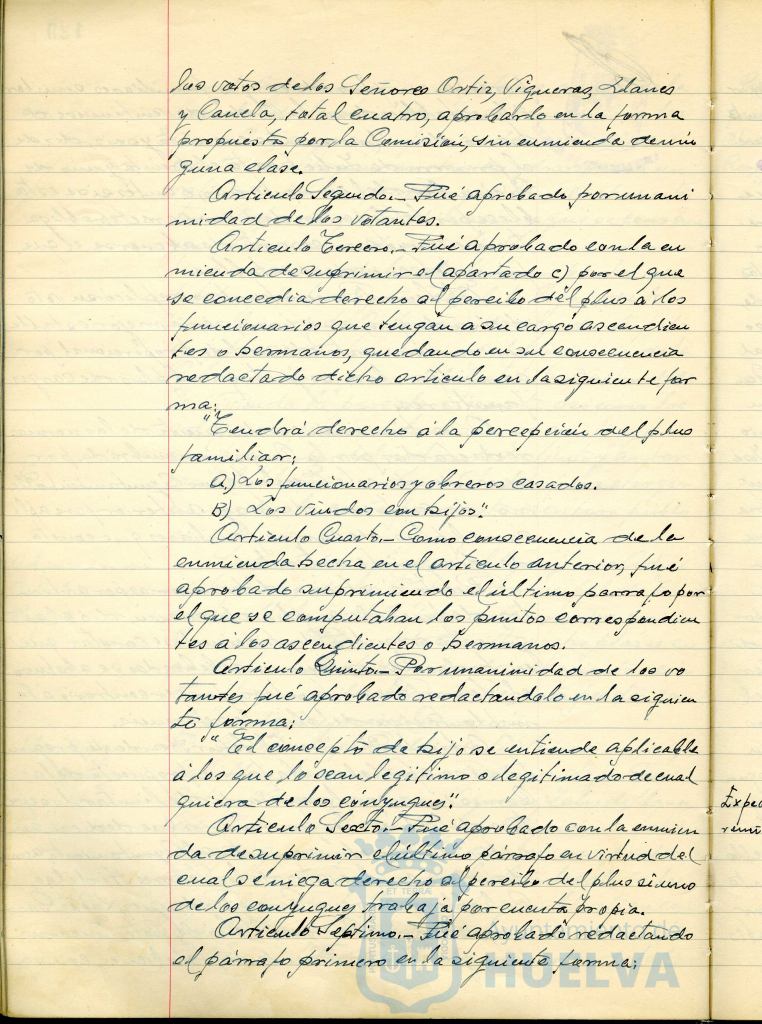 los votos de los Señores Ortiz, Vigueras, Llanes
y Canela, total cuatro, aprobarlo en la forma
propuesta por la Comisión, sin enmienda denin
guna clase.
Articulo Segundo.- Fué aprobado porunani
midad de los votantes.
Articulo Tercero.- Fué aprobado con la en
mienda de suprimir el apartado c) por el que
se concedia derecho al percibo del plus á los
funcionarios que tengan a su cargo ascendien
tes o hermanos, quedando en su consecuencia
redactado dicho articulo en la siguiente for
ma:
"Tendrá derecho á la percepción del plus
familiar:
A) Los funcionarios y obreros casados.
B) Los viudos con hijos".
Articulo Cuarto.- Como consecuencia de la
enmienda hecha en el articulo anterior, fué
aprobado suprimiendo el último parrafo por
el que se computaban los puntos correspondien
tes á los ascendientes o hermanos.
Articulo Quinto.- Por unanimidad de los vo
tantes fué aprobado redactandolo en la siguien
te forma:
"El concepto de hijo se entiende aplicable
á los que lo sean legitimo o legitimado de cual
quiera de los cónyugues".
Articulo Sexto.- Fué aprobado con la enmien
da de suprimir el último párrafo en virtud del
cual se niega derecho al percibo del plus si uno
de los conyugues trabaja por cuenta propia.
Articulo Septimo.- Fué aprobado redactando
el párrafo primero en la siguiente forma:
Ayuntamiento de
HUELVA